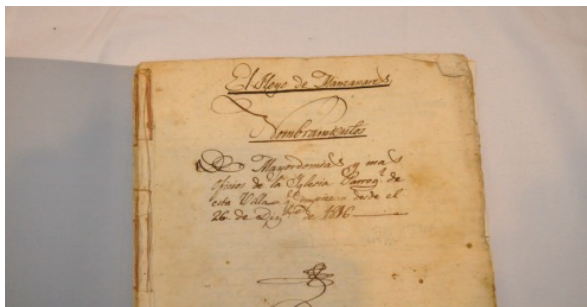 El Hoyo de Manzanares
Nombramientos
De Mayordomias y mas
oficios de la Yglesia Parroql. de
esta Villa qe. empieza desde el
26 de Dizbre. de 1816